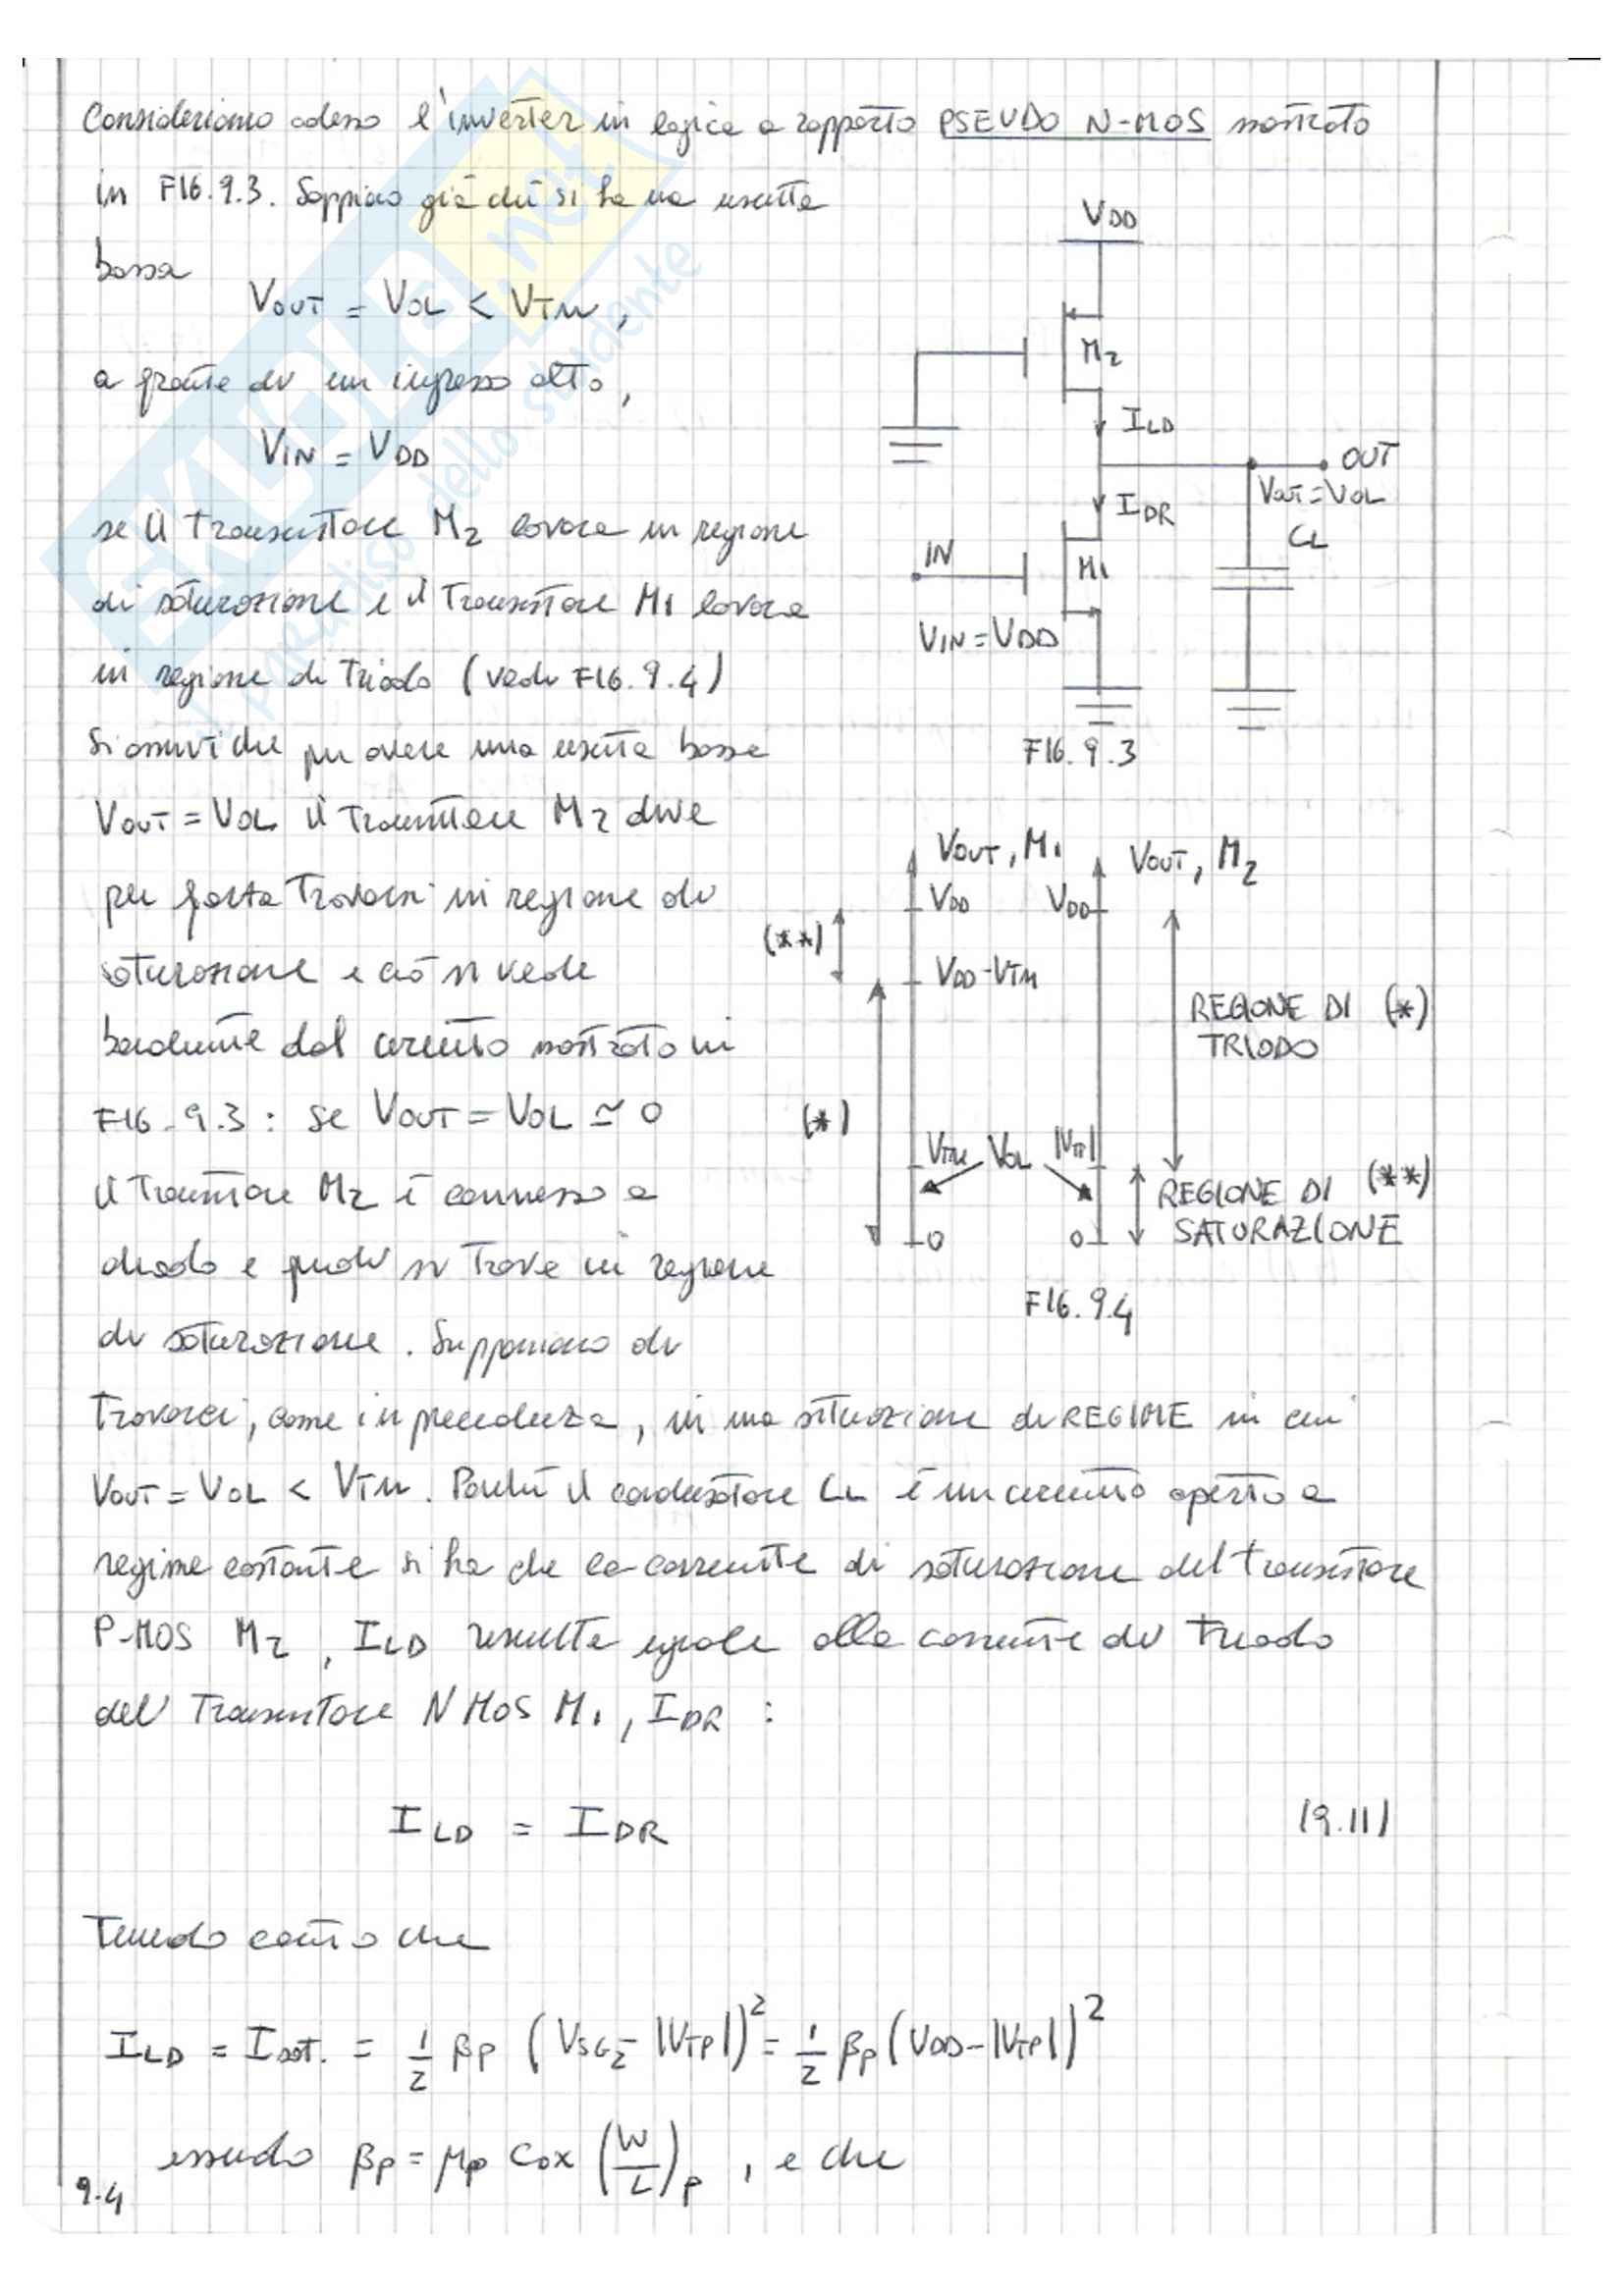 Consideriamo adesso l'inverter in logica a rapporto PSEUDO N-MOS mostrato
in FIG. 9.3. Sappiamo già che si ha una uscita
bassa
VOUT = VOL < VTN,
a fronte di un ingresso alto,
VIN = VDD
se il transistore M2 lavora in regione
di saturazione e il transistore M1 lavora
in regione di triodo (vedi FIG. 9.4)
Si osservi che per avere una uscita bassa
VOUT = VOL il transistore M2 deve
per forza trovarsi in regione di
saturazione e ciò si vede
banalmente dal circuito mostrato in
FIG. 9.3 : se VOUT = VOL ≃ 0
il transistore M2 è connesso a
diodo e quindi si trova in regione
di saturazione. Supponiamo di
trovarci, come in precedenza, in una situazione di REGIME in cui
VOUT = VOL < VTN. Poiché il condensatore CL è un circuito aperto a
regime costante si ha che la corrente di saturazione del transistore
P-MOS M2, ILD risulta uguale alla corrente di triodo
del transistore NMOS M1, IDR :
ILD = IDR (9.11)
Tenendo conto che
ILD = Isat. = 1/2 βP (VSG2 - |VTP|)² = 1/2 βP (VDD - |VTP|)²
essendo βP = μP COX (W/L)P , e che
9.4
VDD
M2
ILD
OUT
VOUT = VOL
IDR
CL
IN
M1
VIN = VDD
FIG. 9.3
VOUT, M1
VOUT, M2
VDD
VDD
(**)
VDD-VTN
REGIONE DI (*)
TRIODO
(*)
VTN VOL |VTP|
REGIONE DI (**)
SATURAZIONE
0
0
FIG. 9.4
SKUOLA.net
il paradiso dello studente